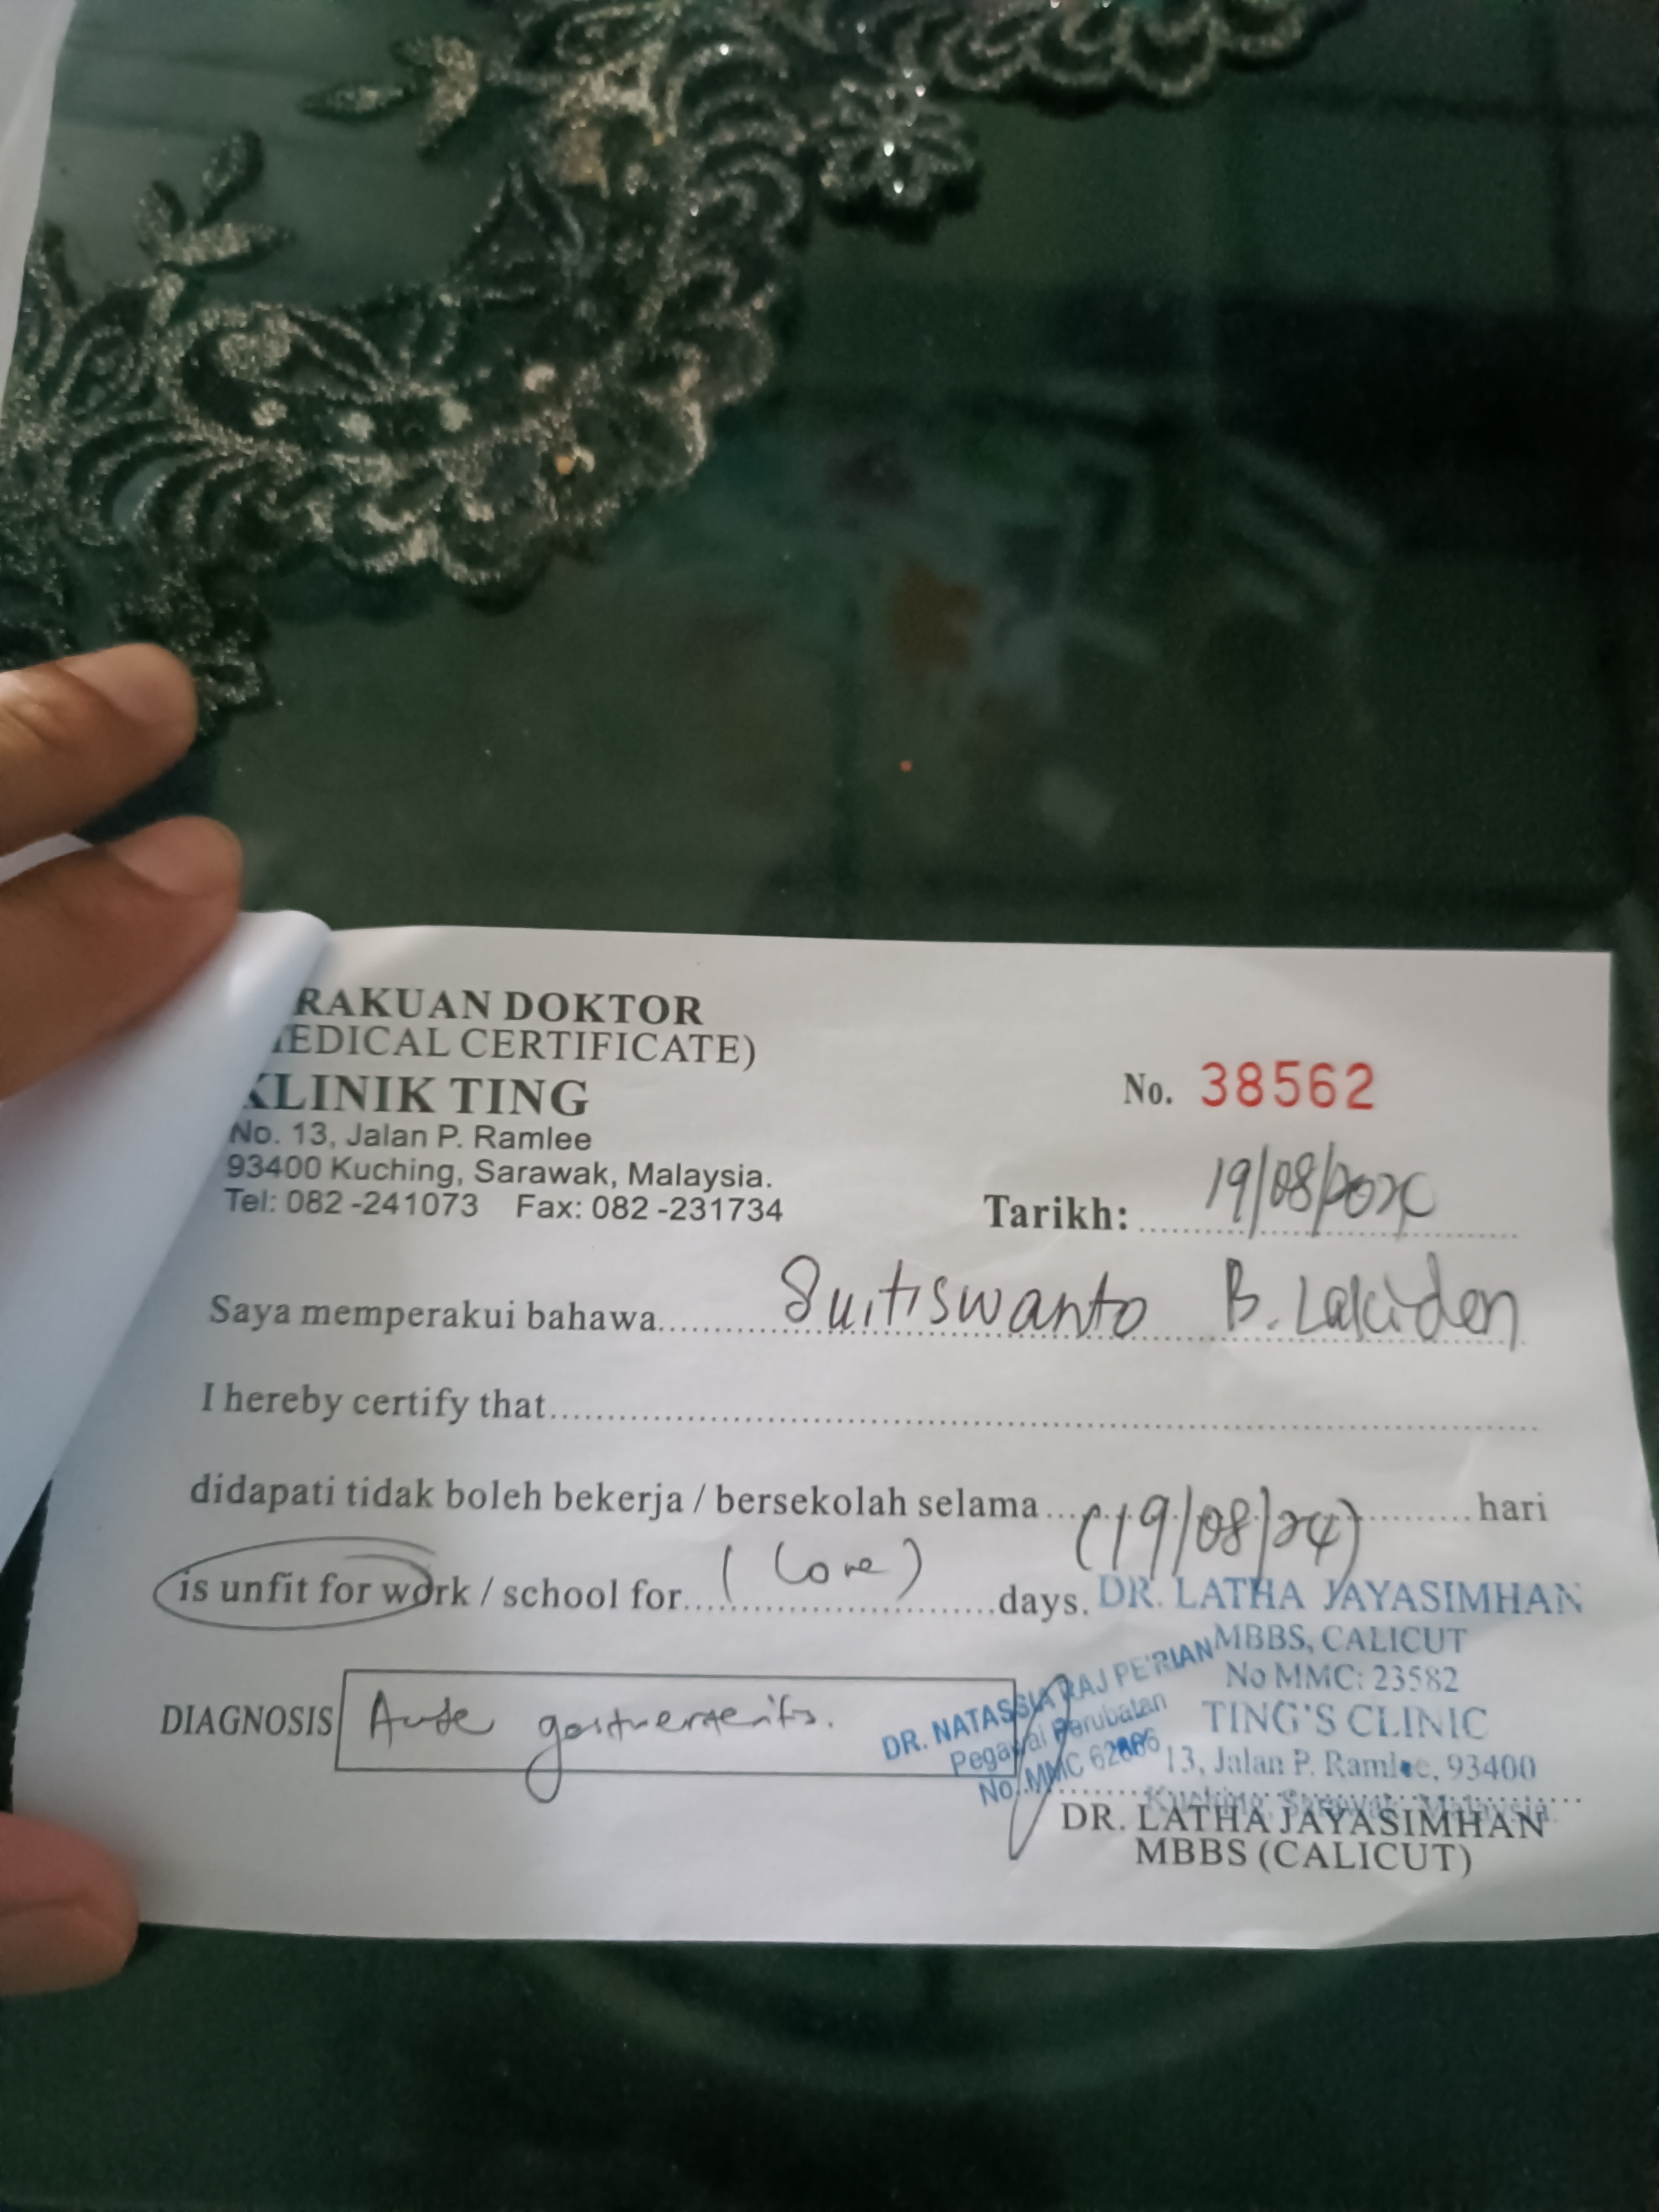 RAKUAN DOKTOR
EDICAL CERTIFICATE)
KLINIK TING
No. 13, Jalan P. Ramlee
93400 Kuching, Sarawak, Malaysia.
Tel: 082 -241073 Fax: 082 -231734
No. 38562
Tarikh: 19/08/
Saya memperakui bahawa Suitiswanto B. Lakiden
I hereby certify that
didapati tidak boleh bekerja / bersekolah selama (19/08/24) hari
is unfit for work / school for (one) days.
DIAGNOSIS
DR. NATASSIA RAJ PERIAN
Pegawai Perubatan
No. MMC
DR. LATHA JAYASIMHAN
MBBS, CALICUT
No MMC: 23582
TING'S CLINIC
13, Jalan P. Ramlee, 93400
Kuching, Sarawak, Malaysia.
DR. LATHA JAYASIMHAN
MBBS (CALICUT)